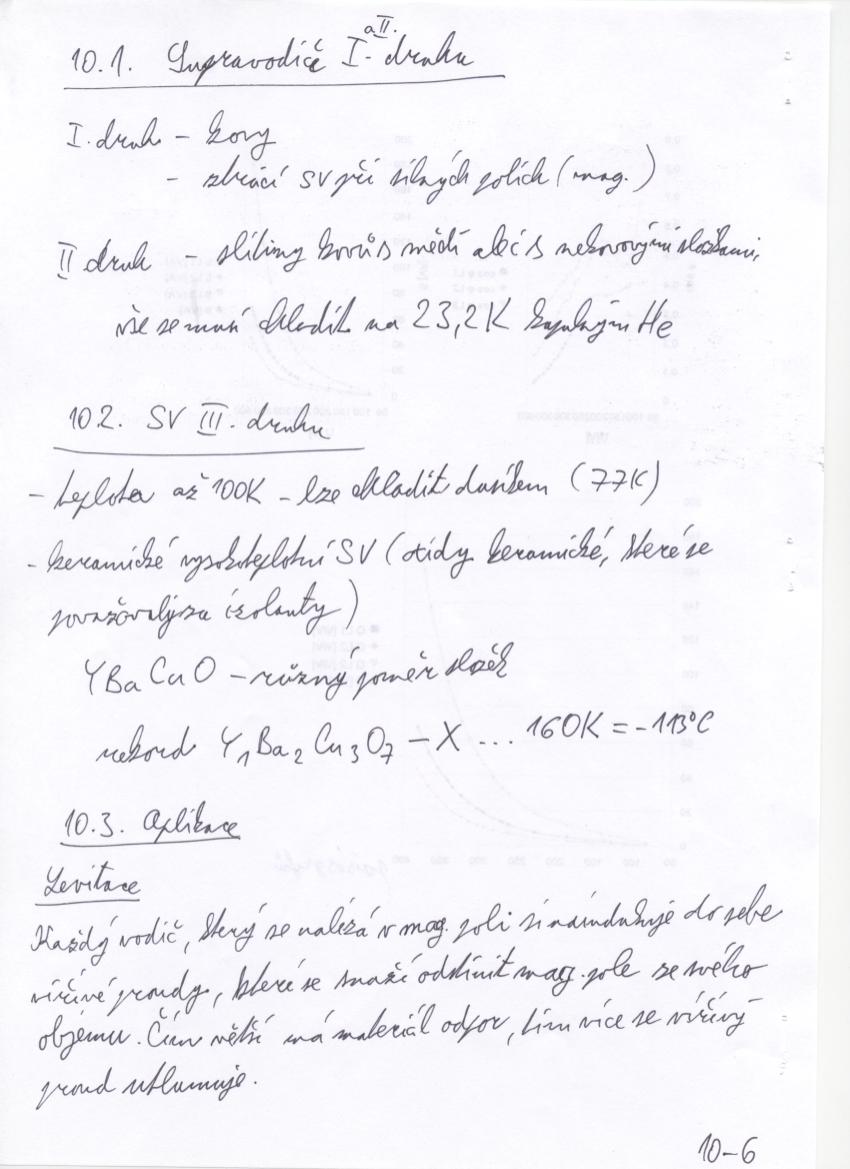 10.1. Supravodiče I. a II. druhu
I. druh - kovy
- ztrácí SV při silných polích (mag.)
II druh - slitiny kovů s mědí ale i s nekovovými složkami,
vše se musí chladit na 23,2K kapalným He
10.2. SV III. druhu
- teplota až 100K - lze chladit dusíkem (77K)
- keramické vysokoteplotní SV (oxidy keramické, které se
považovaly za izolanty)
YBaCuO - různý poměr složek
rekord Y₁Ba₂Cu₃O₇ - X ... 160K = -113°C
10.3. Aplikace
Levitace
Každý vodič, který se nalézá v mag. poli si naindukuje do sebe
vířivé proudy, které se snaží odstínit mag. pole ze svého
objemu. Čím větší má materiál odpor, tím více se vířivý
proud utlumuje.
10-6